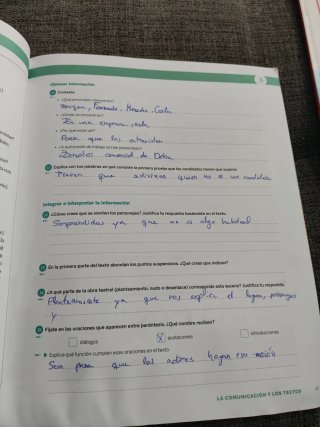 Obtener información
Contesta.
• ¿Qué personajes intervienen?
Enrique, Fernando, Mercedes, Carlos
• ¿Dónde se encuentran?
En una empresa, sala
• ¿Por qué están allí?
Para que los entrevisten
• ¿A qué puesto de trabajo se han presentado?
comercial de
Explica con tus palabras en qué consiste la primera prueba que los candidatos tienen que superar.
Tienen que adivinar quien no es un candidato
Integrar e interpretar la información
¿Cómo crees que se sienten los personajes? Justifica tu respuesta basándote en el texto.
Sorprendidos ya que no es algo habitual
En la primera parte del texto abundan los puntos suspensivos. ¿Qué crees que indican?
¿A qué parte de la obra teatral (planteamiento, nudo o desenlace) corresponde esta escena? Justifica tu respuesta.
Planteamiento ya que nos explica el lugar, personajes
y
Fíjate en las oraciones que aparecen entre paréntesis. ¿Qué nombre reciben?
diálogos
X acotaciones
introducciones
Explica qué función cumplen esas oraciones en el texto.
Son para que los actores hagan esa acción
LA COMUNICACIÓN Y LOS TEXTOS